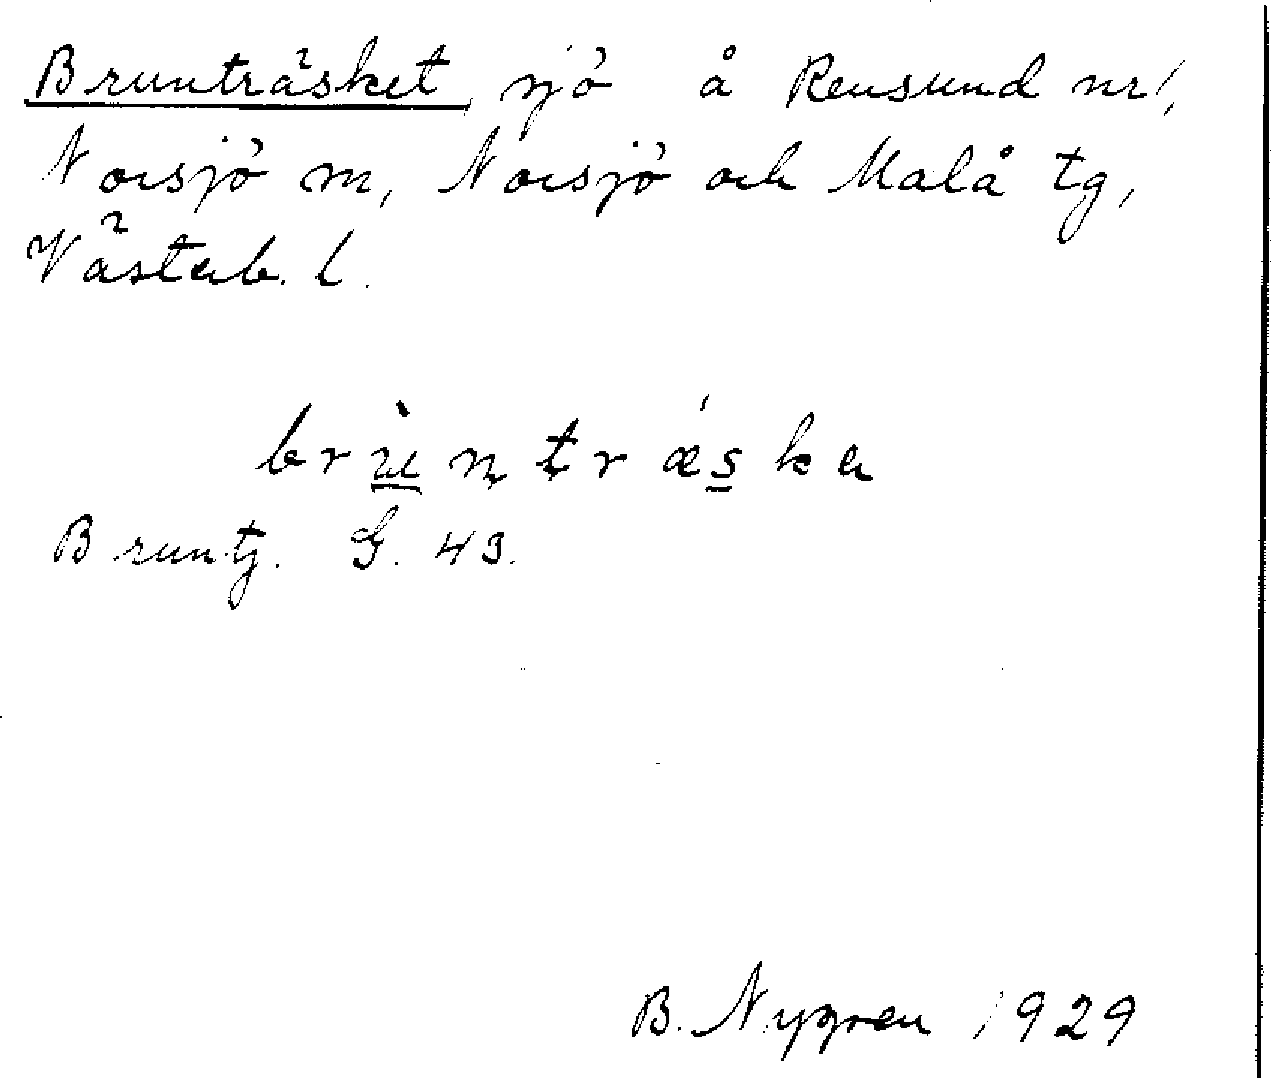 Brunträsket sjö å Rensund nr 1,
Norsjö sn, Norsjö och Malå tg,
Västerb. l.
brùntrǽska
Bruntj. G. 43.
B. Nygren 1929